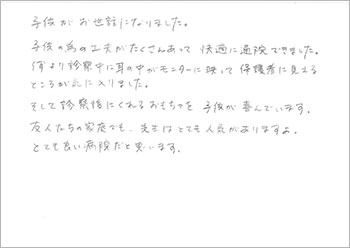 子供がお世話になりました。
子供の為の工夫がたくさんあって 快適に通院できました。
何より診察中に耳の中がモニターに映って 保護者に見える
ところが気に入りました。
そして診察後にくれるおもちゃを 子供が喜んでいます。
友人たちの家庭でも、先生はとても人気がありますよ。
とても良い病院だと思います。